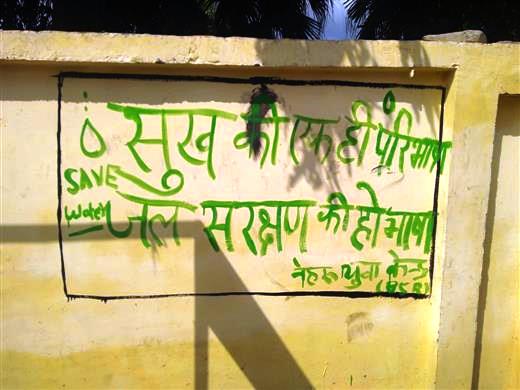 सुख की एक ही परिभाषा
SAVE
Water
जल सरक्षण की हो भाषा
नेहरू युवा केन्द्र